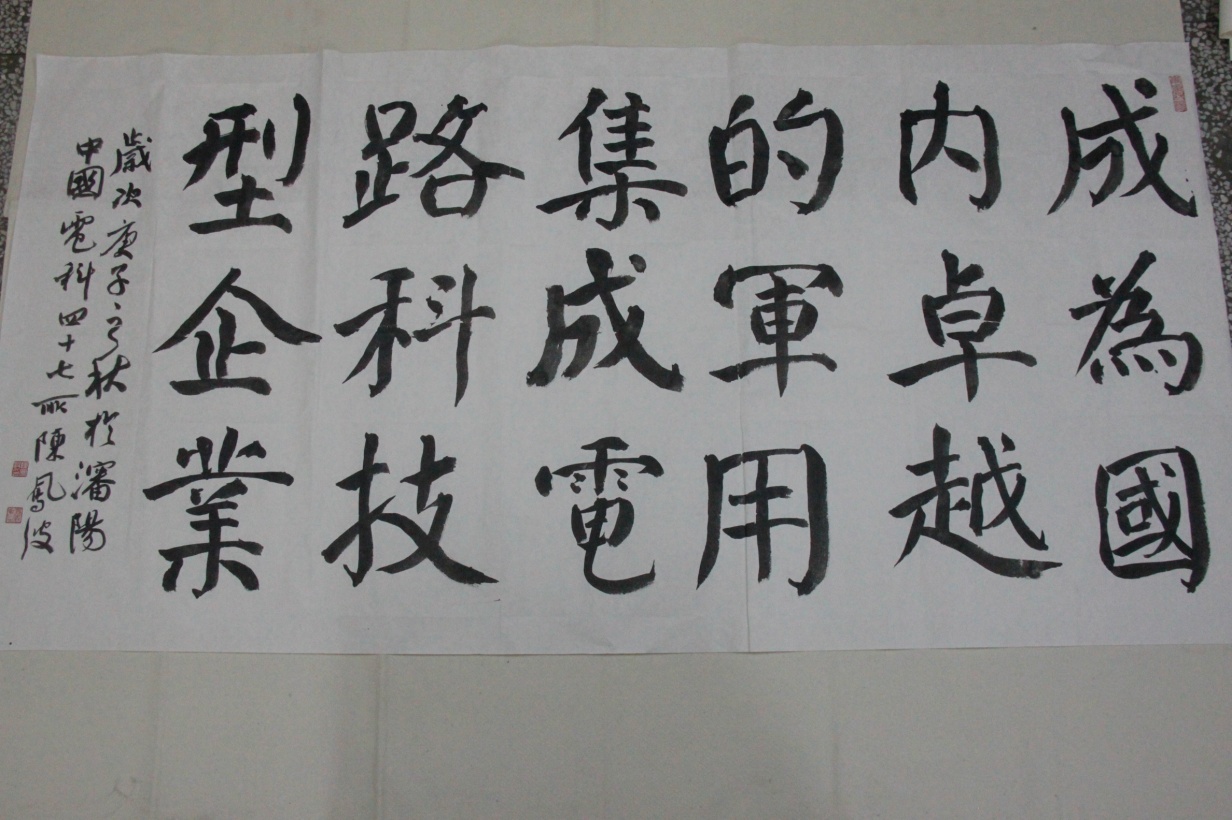 成為國
內卓越
的軍用
集成電
路科技
型企業
歲次庚子之秋於瀋陽
中國電科四十七所陳鳳波